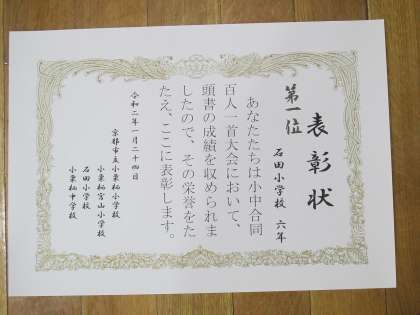 表彰状
第一位
石田小学校 六年
あなたたちは小中合同
百人一首大会において、
頭書の成績を収められま
したので、その栄誉をた
たえ、ここに表彰します。
令和二年一月二十四日
京都市立小栗栖小学校
小栗栖宮山小学校
石田小学校
小栗栖中学校